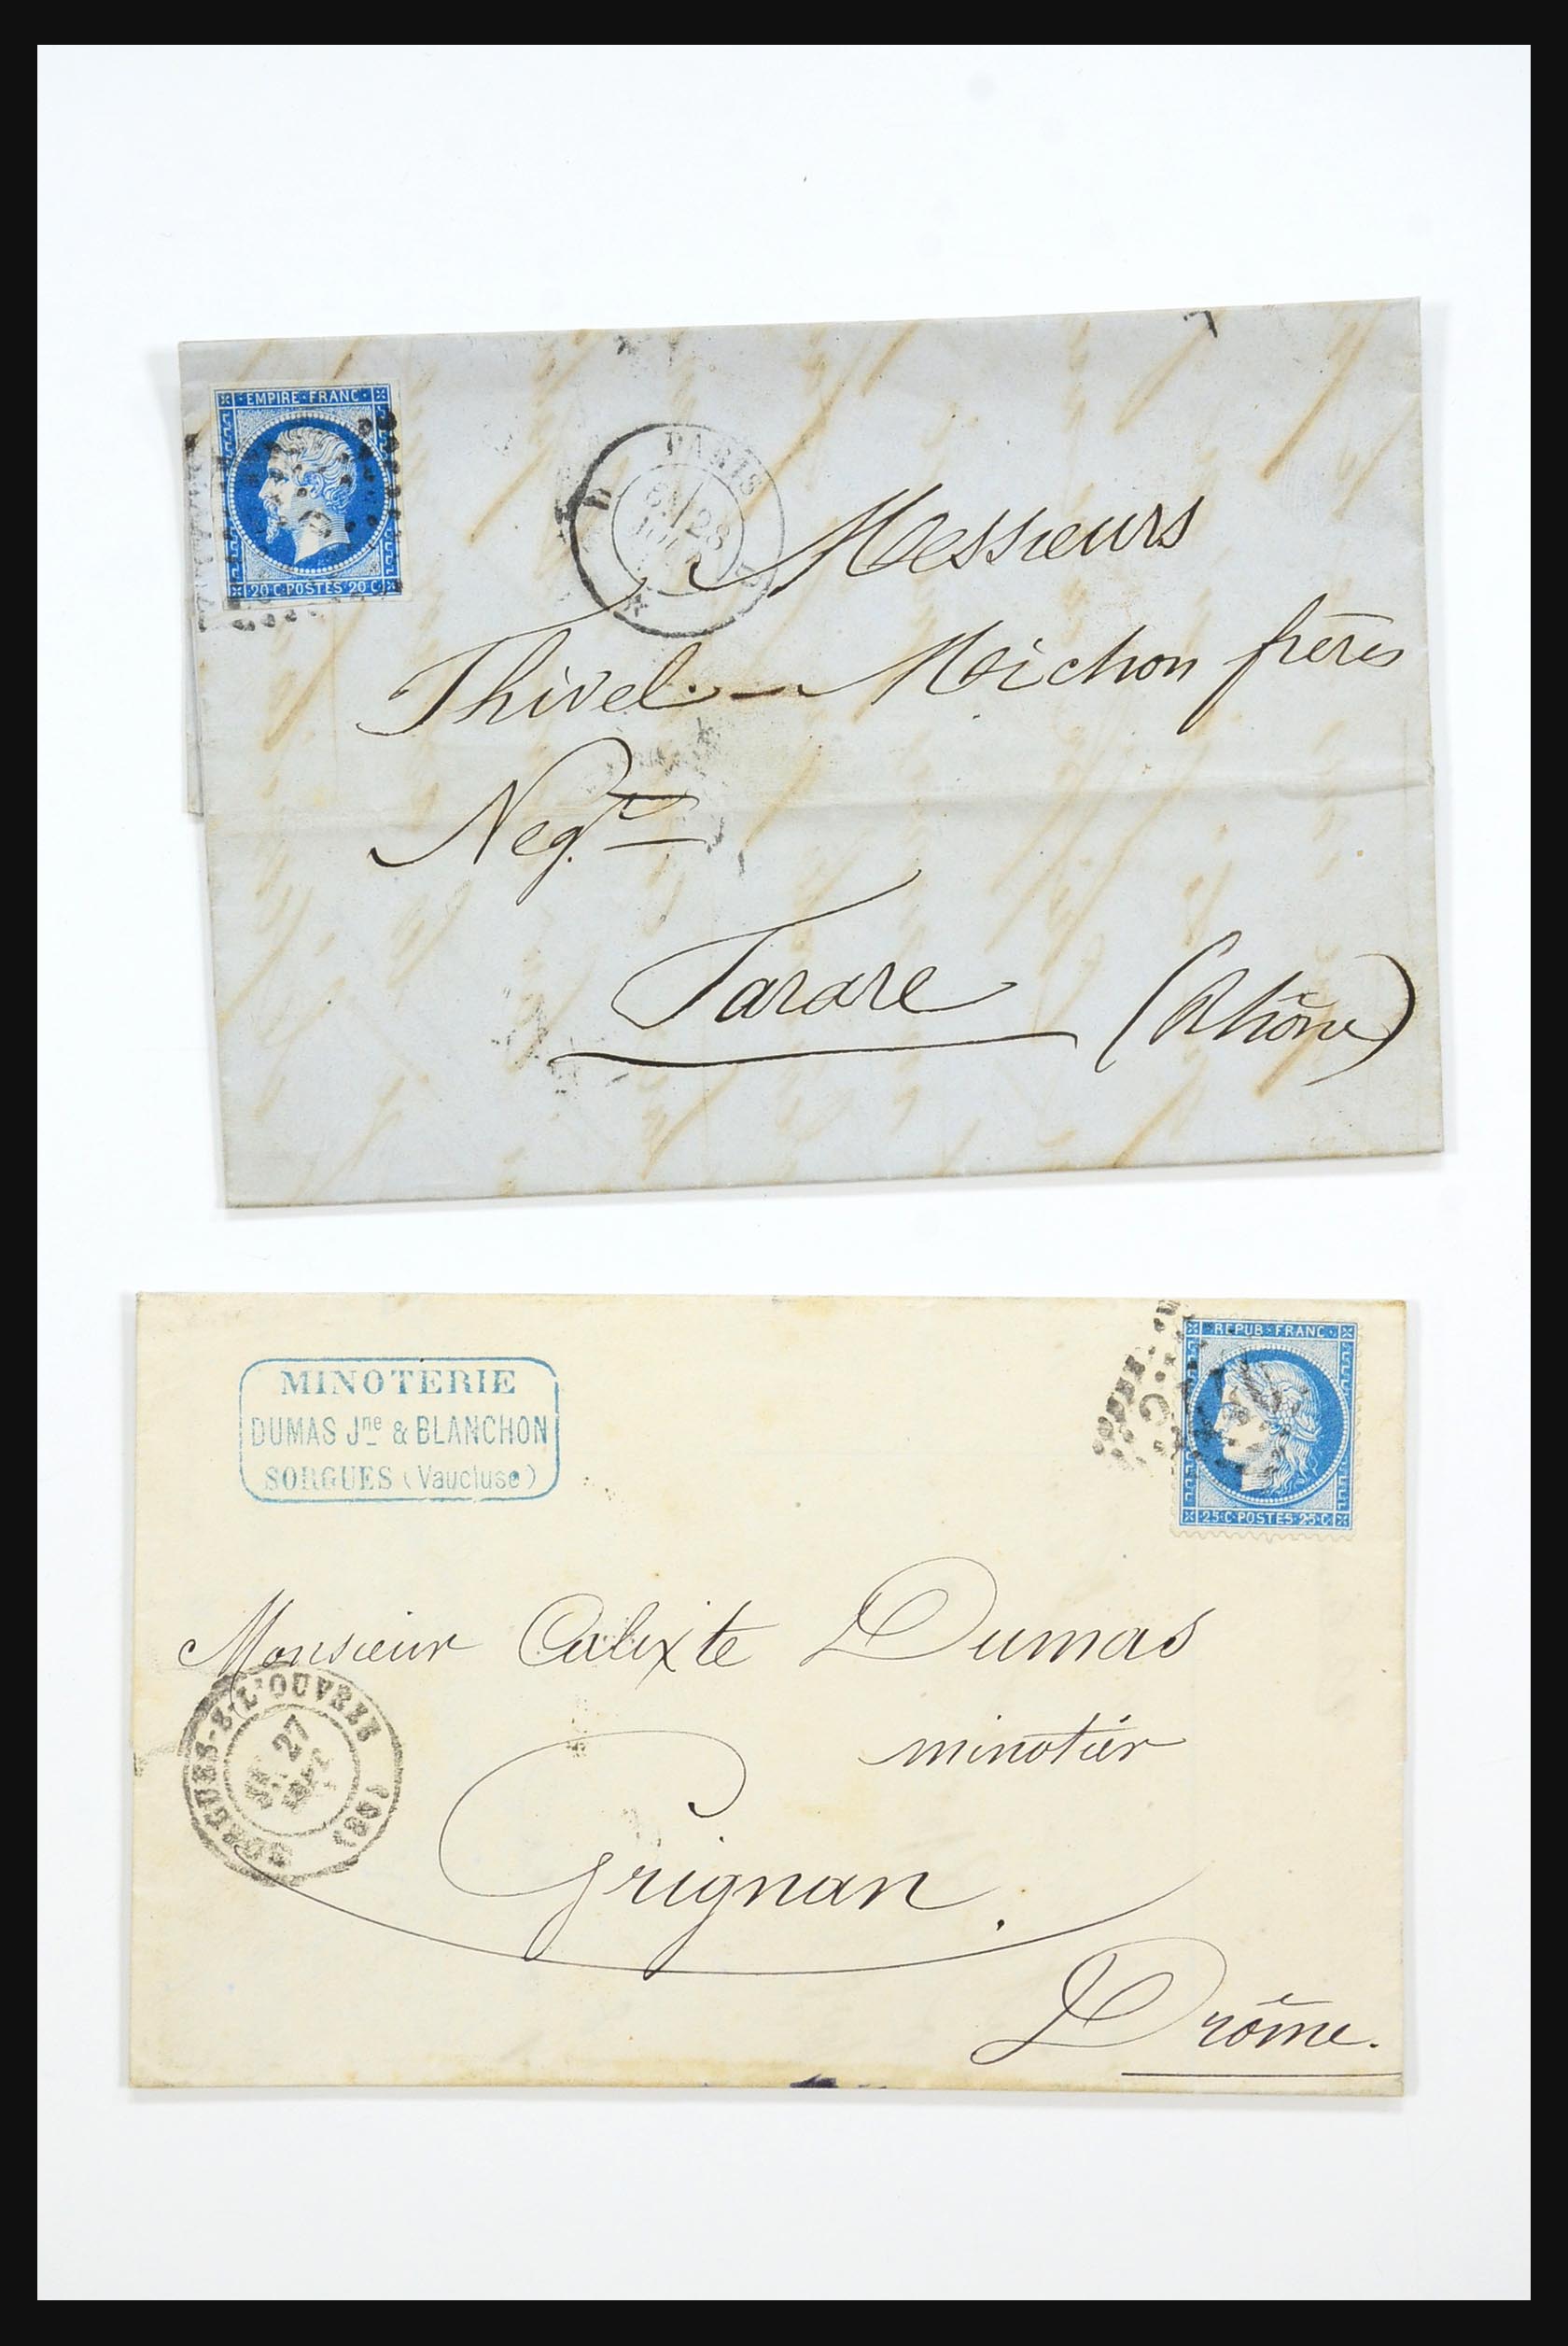 EMPIRE·FRANC
20·C·POSTES·20·C
PARIS
28
Messieurs
Thivel — Michon frères
Neg.ts
Tarare (Rhône)
REPUB·FRANC
25·C·POSTES·25·C
MINOTERIE
DUMAS Jne & BLANCHON
SORGUES (Vaucluse)
Monsieur Calixte Dumas
minotier
SORGUES-S-L'OUVEZE (88)
27
Grignan.
Drôme.